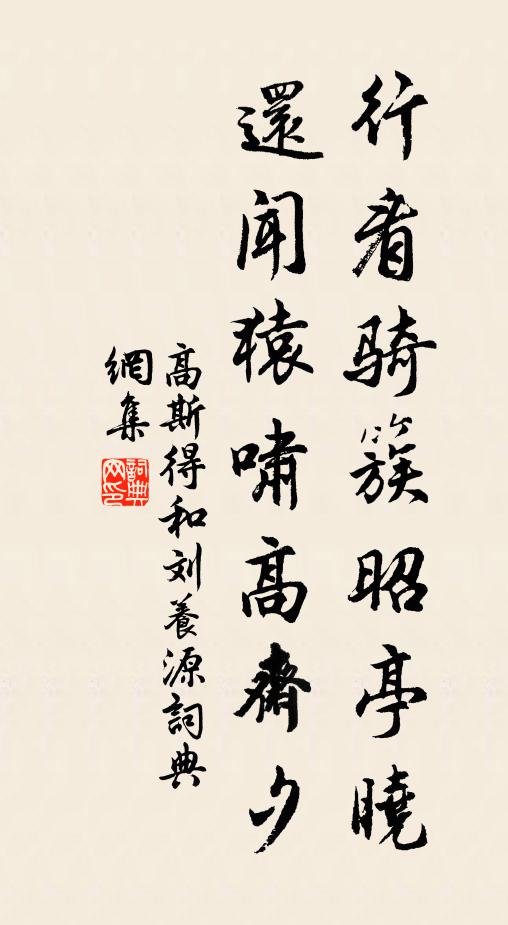 行看騎簇昭亭曉
還聞猿嘯高齋夕
高斯得和刘養源詞典
網集
詞典网印